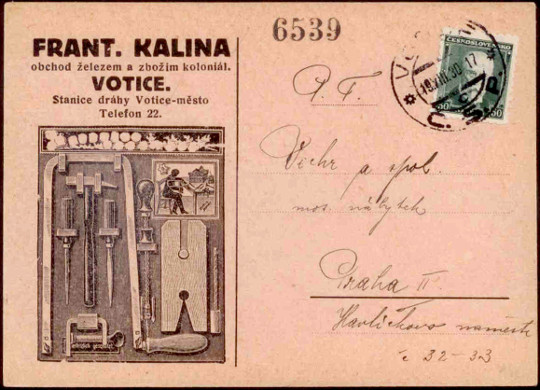 FRANT. KALINA
obchod železem a zbožím koloniál.
VOTICE.
Stanice dráhy Votice-město
Telefon 22.
6539
ČESKOSLOVENSKO
50 50
19.VIII.30 17
P. T.
a spol.
nábytek
Praha II.
Havlíčkovo náměstí
č 32-33